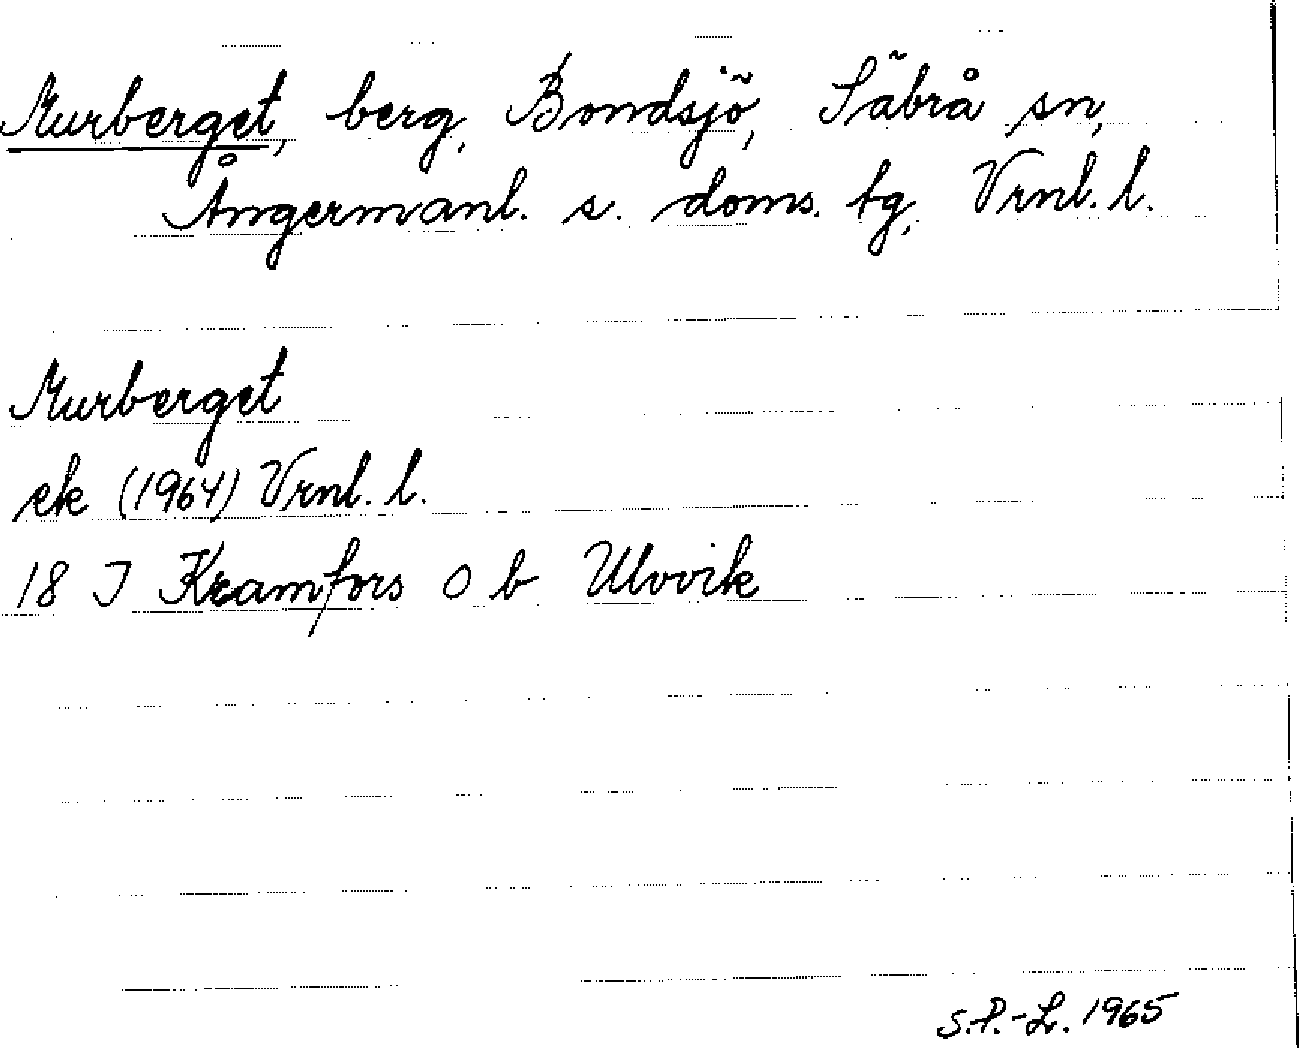 Murberget, berg, Bondsjö, Säbrå sn,
Ångermanl. s. doms. tg, Vrnl. l.
Murberget
ek (1964) Vrnl. l.
18 J Kramfors O b Ulvvik
S.P.-L. 1965